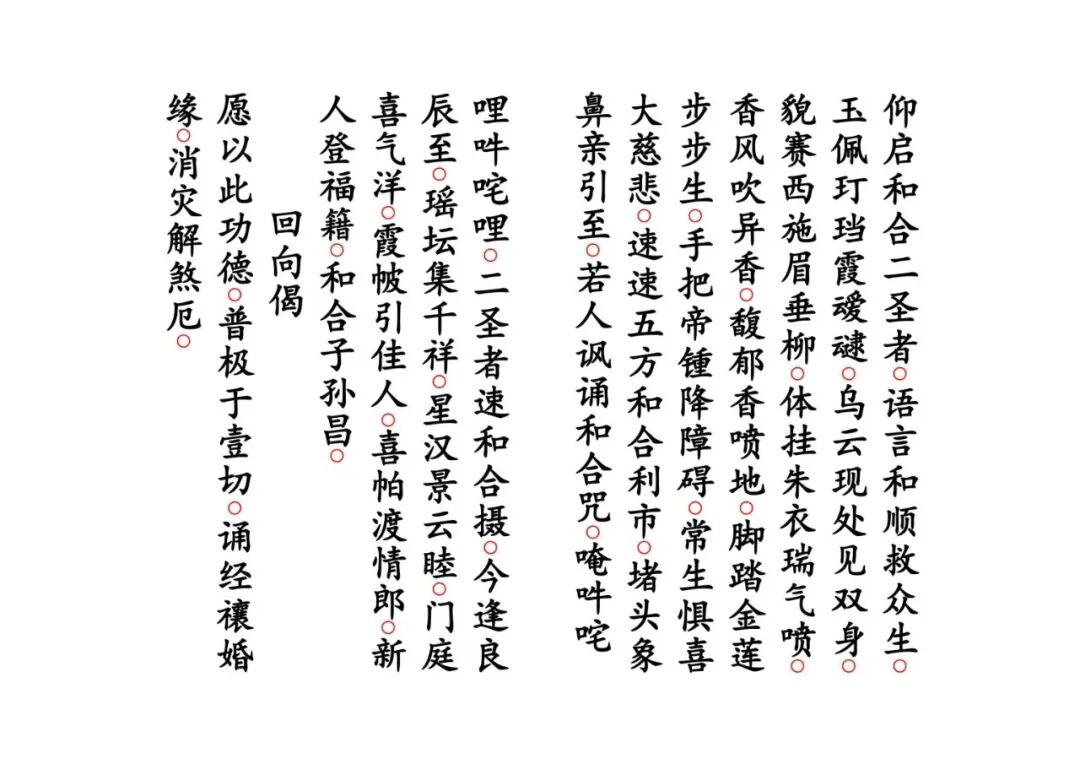 仰启和合二圣者○语言和顺救众生○
玉佩玎珰霞叆叇○乌云现处见双身○
貌赛西施眉垂柳○体挂朱衣瑞气喷○
香风吹异香○馥郁香喷地○脚踏金莲
步步生○手把帝锺降障碍○常生惧喜
大慈悲○速速五方和合利市○堵头象
鼻亲引至○若人讽诵和合咒○唵吽咤
哩吽咤哩○二圣者速和合摄○今逢良
辰至○瑶坛集千祥○星汉景云睦○门庭
喜气洋○霞帔引佳人○喜帕渡情郎○新
人登福籍○和合子孙昌○
回向偈
愿以此功德○普极于壹切○诵经禳婚
缘○消灾解煞厄○